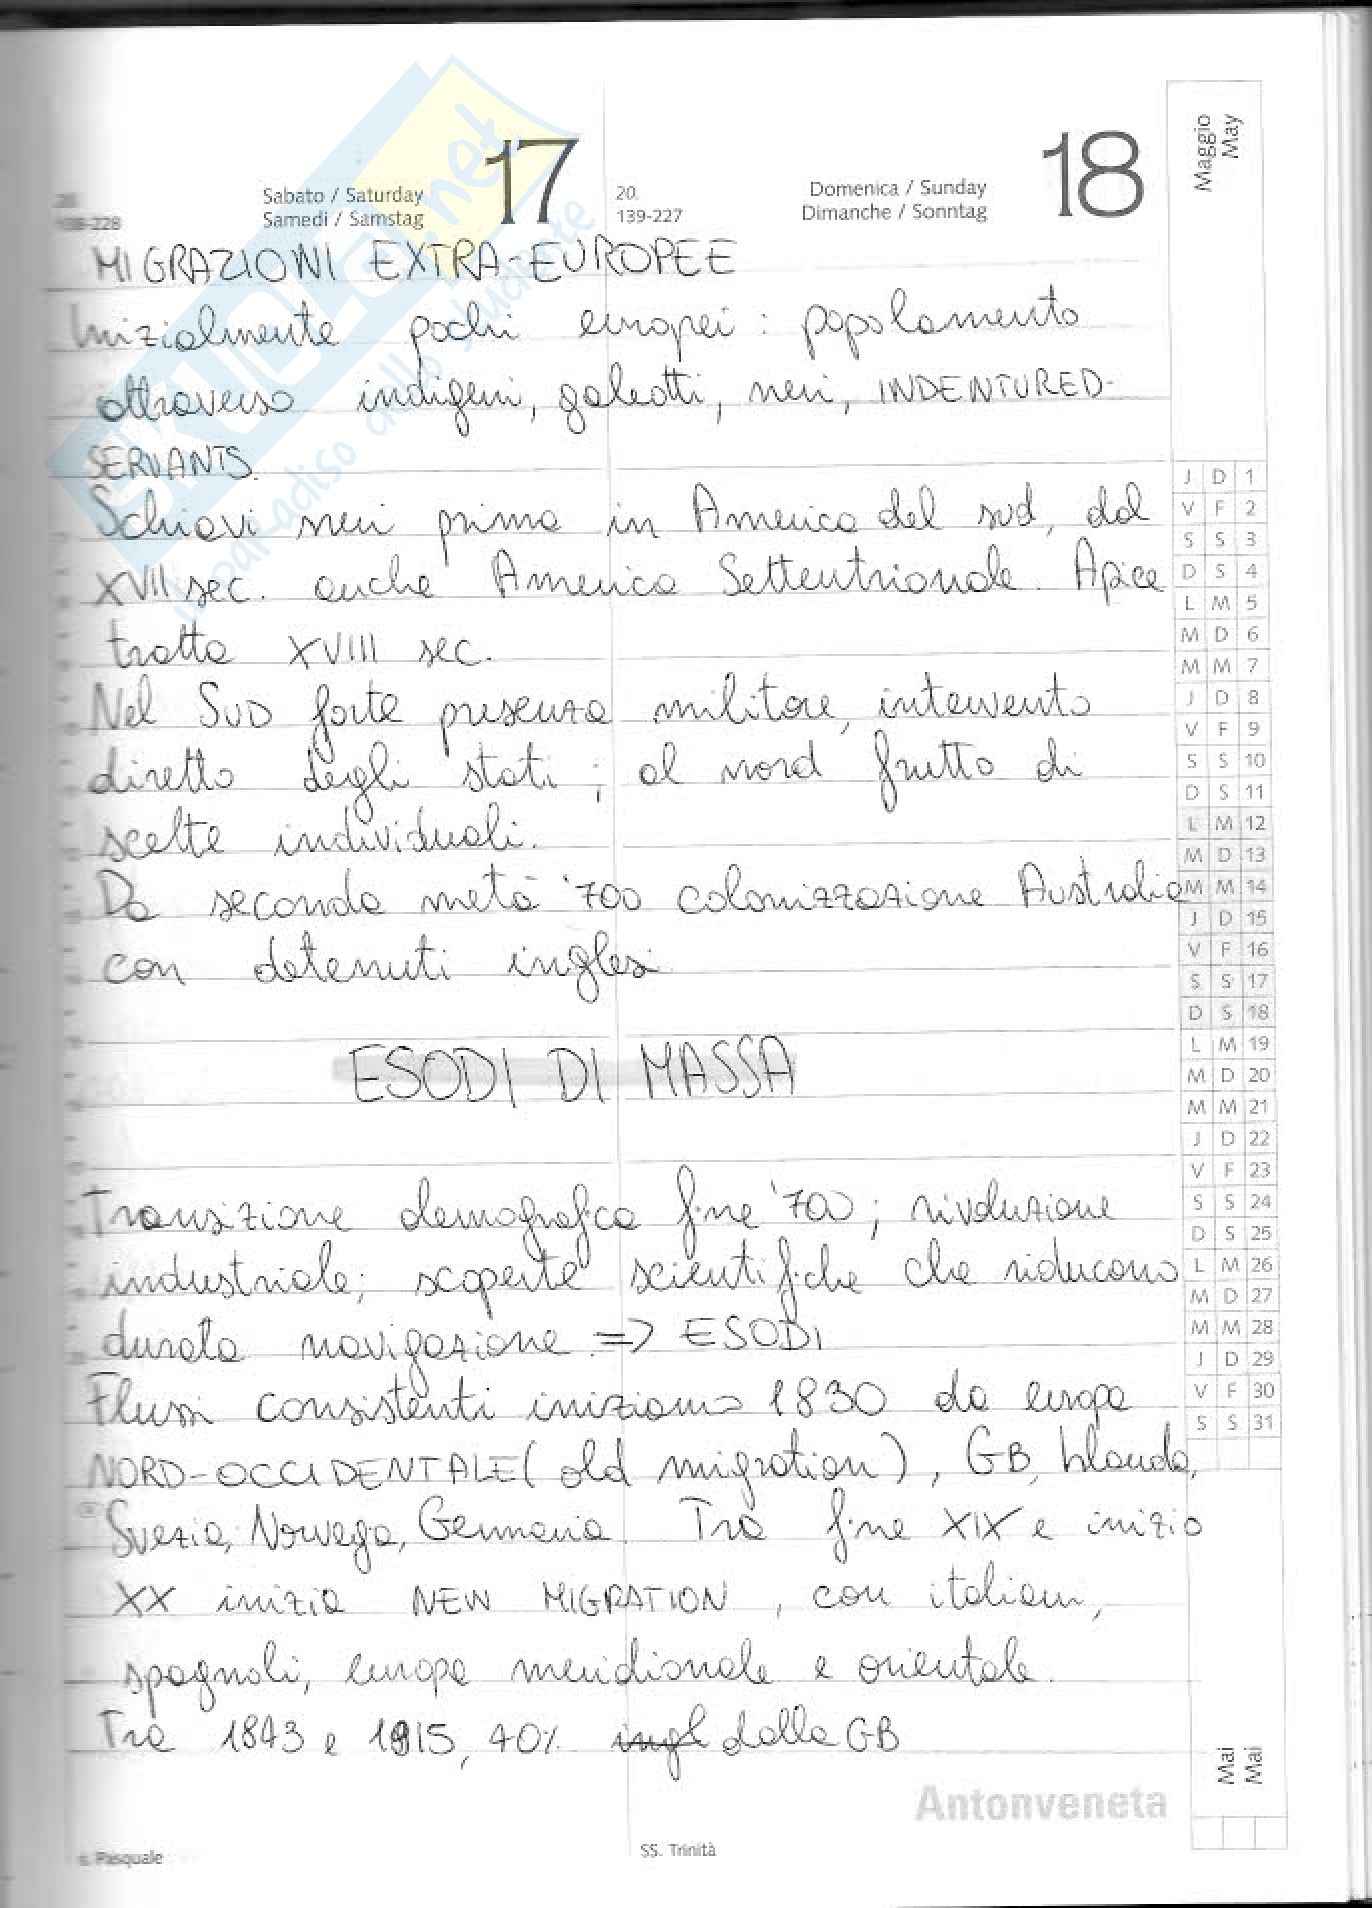 17
18
Sabato / Saturday
Samedi / Samstag
20.
139-227
Domenica / Sunday
Dimanche / Sonntag
20.
138-228
Maggio
May
SKUOLA.net
il paradiso dello studente
MIGRAZIONI EXTRA-EUROPEE
Inizialmente pochi europei : popolamento
attraverso indigeni, galeotti, neri, INDENTURED-
SERVANTS.
Schiavi neri prima in America del sud, dal
XVII sec. anche America Settentrionale. Apice
tratta XVIII sec.
Nel SUD forte presenza militare, intervento
diretto degli stati ; al nord frutto di
scelte individuali.
Da seconda metà '700 colonizzazione Australia
con detenuti inglesi
ESODI DI MASSA
Transizione demografica fine '700 ; rivoluzione
industriale; scoperte scientifiche che riducono
durata navigazione. => ESODI
Flussi consistenti iniziano 1830 da europa
NORD-OCCIDENTALE (old migration), GB, Irlanda,
Svezia, Norvega, Germania. Tra fine XIX e inizio
XX inizia NEW MIGRATION, con italiani,
spagnoli, europa meridionale e orientale.
Tra 1843 e 1915, 40% ingl dalla GB
J D 1
V F 2
S S 3
D S 4
L M 5
M D 6
M M 7
J D 8
V F 9
S S 10
D S 11
L M 12
M D 13
M M 14
J D 15
V F 16
S S 17
D S 18
L M 19
M D 20
M M 21
J D 22
V F 23
S S 24
D S 25
L M 26
M D 27
M M 28
J D 29
V F 30
S S 31
Mai
Mai
Antonveneta
s. Pasquale
SS. Trinità